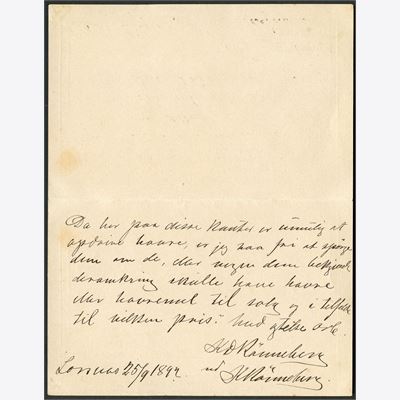 Da her paa disse kanter er umulig at
opdrive havre, er jeg saa fri at spørge
dem om de, eller nogen dem bekjendt
deromkring skulle have havre
eller havremel til salg og i tilfælde
til hvilken pris. Med agtelse Erb.
Rønneberg
ved Rønneberg.
25/9 1892